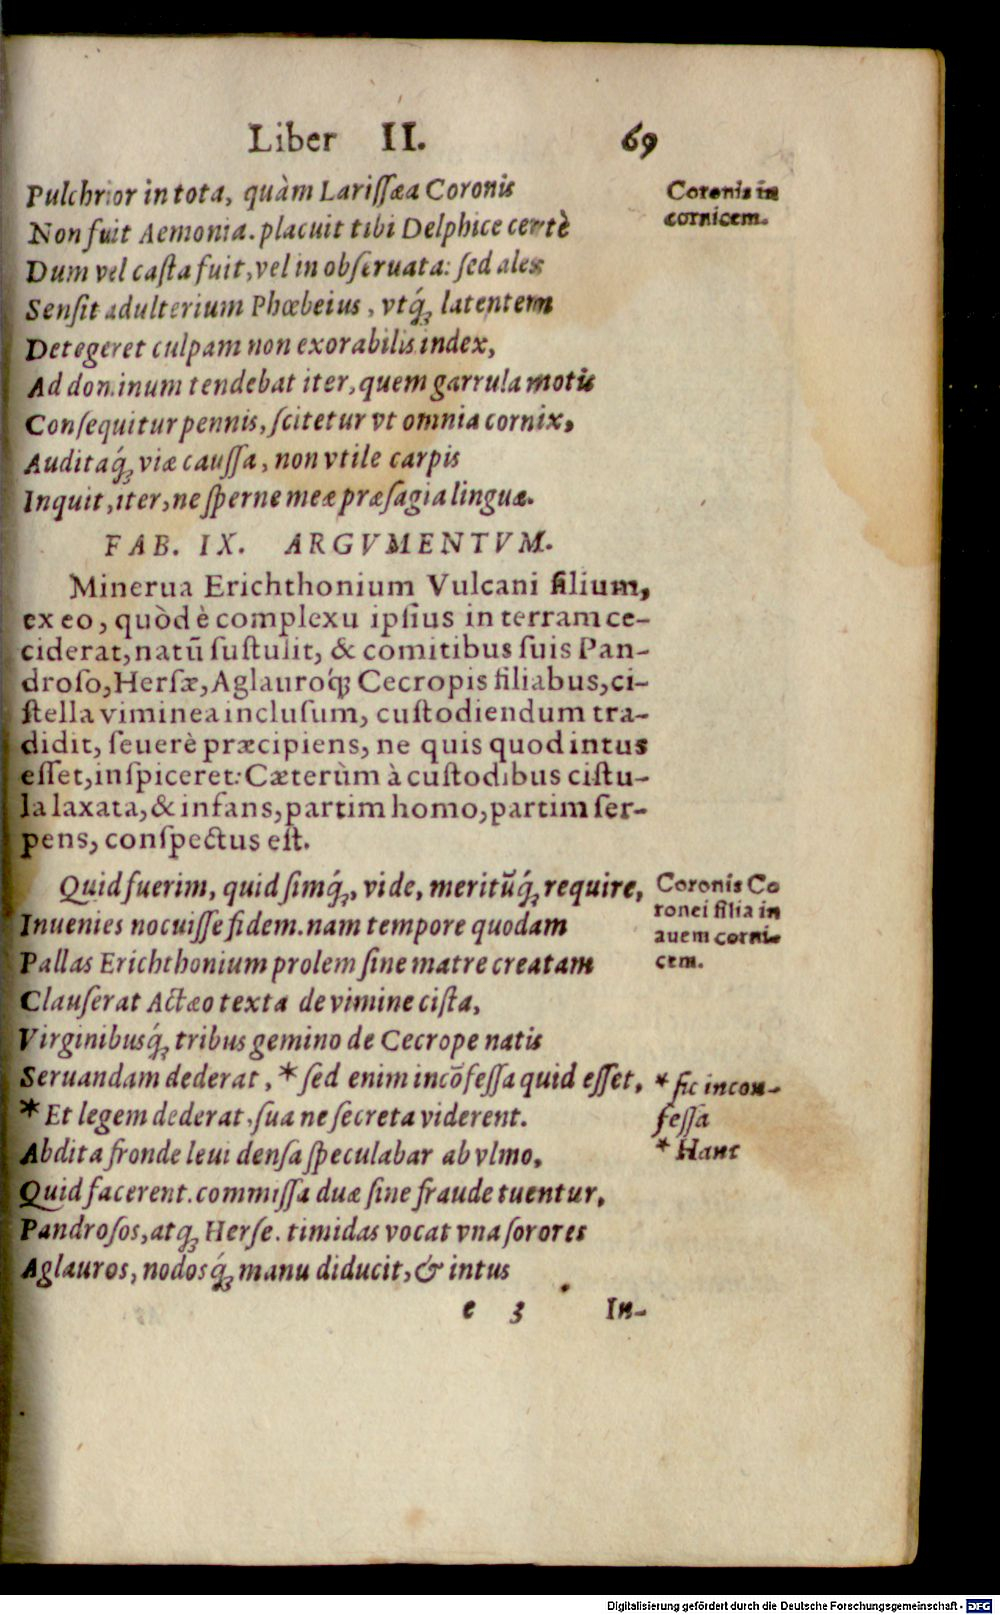 Liber II. 69
Pulchrior in tota, quàm Lariſſæa Coronis
Non fuit Aemonia. placuit tibi Delphice certè
Dum vel caſta fuit, vel inobſeruata: ſed ales
Senſit adulterium Phœbeius, vtq́ꝫ latentem
Detegeret culpam non exorabilis index,
Ad dominum tendebat iter, quem garrula motis
Conſequitur pennis, ſcitetur vt omnia cornix,
Auditaq́ꝫ viæ cauſſa, non vtile carpis
Inquit, iter, ne ſperne meæ præſagia linguæ.
Coronis in
cornicem.
FAB. IX. ARGVMENTVM.
Minerua Erichthonium Vulcani filium,
ex eo, quòd è complexu ipſius in terram ce-
ciderat, natũ ſuſtulit, & comitibus ſuis Pan-
droſo, Herſæ, Aglauroq́ꝫ Cecropis filiabus, ci-
ſtella viminea incluſum, cuſtodiendum tra-
didit, ſeuerè præcipiens, ne quis quod intus
eſſet, inſpiceret: Cæterùm à cuſtodibus ciſtu-
la laxata, & infans, partim homo, partim ſer-
pens, conſpectus eſt.
Quid fuerim, quid ſimq́ꝫ, vide, meritũq́ꝫ require,
Inuenies nocuiſſe fidem. nam tempore quodam
Pallas Erichthonium prolem ſine matre creatam
Clauſerat Actæo texta de vimine ciſta,
Virginibusq́ꝫ tribus gemino de Cecrope natis
Seruandam dederat, * ſed enim incõfeſſa quid eſſet,
* Et legem dederat, ſua ne ſecreta viderent.
Abdita fronde leui denſa ſpeculabar ab vlmo,
Quid facerent. commiſſa duæ ſine fraude tuentur,
Pandroſos, atqꝫ Herſe. timidas vocat vna ſorores
Aglauros, nodosq́ꝫ manu diducit, & intus
Coronis Co
ronei filia in
auem corni-
cem.
* ſic incon-
feſſa
* Hanc
e 3 In-
Digitalisierung gefördert durch die Deutsche Forschungsgemeinschaft - DFG